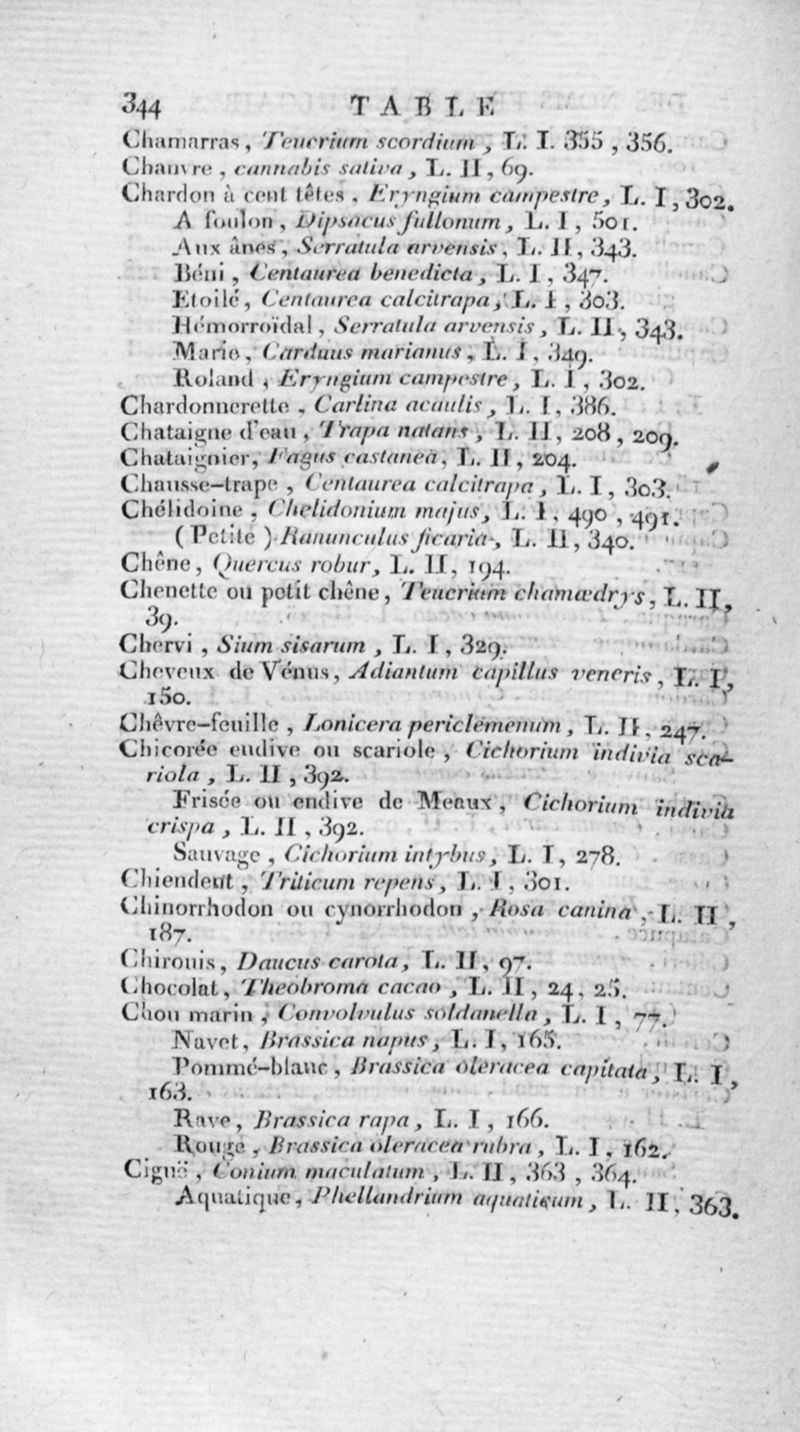 344 TABLE
Chamarras, Teucrium scordium, L. I. 355, 356.
Chanvre, cannabis sativa, L. II, 69.
Chardon à cent têtes, Eryngium campestre, L. I, 302.
A foulon, Dipsacus fullonum, L. I, 501.
Aux ânes, Serratula arvensis, L. II, 343.
Béni, Centaurea benedicta, L. I, 347.
Etoilé, Centaurea calcitrapa, L. I, 303.
Hémorroïdal, Serratula arvensis, L. II, 343.
Marie, Carduus marianus, L. I, 349.
Roland, Eryngium campestre, L. I, 302.
Chardonnerette, Carlina acaulis, L. I, 386.
Chataigne d'eau, Trapa natans, L. II, 208, 209.
Chataignier, Fagus castanea, L. II, 204.
Chausse-trape, Centaurea calcitrapa, L. I, 303.
Chélidoine, Chelidonium majus, L. I, 490, 491.
(Petite) Ranunculus ficaria, L. II, 340.
Chêne, Quercus robur, L. II, 194.
Chenette ou petit chêne, Teucrium chamædrys, L. II,
39.
Chervi, Sium sisarum, L. I, 329.
Cheveux de Vénus, Adiantum capillus veneris, L. I,
150.
Chêvre-feuille, Lonicera periclemenum, L. II, 247.
Chicorée endive ou scariole, Cichorium indivia sca-
riola, L. II, 392.
Frisée ou endive de Meaux, Cichorium indivia
crispa, L. II, 392.
Sauvage, Cichorium intybus, L. I, 278.
Chiendent, Triticum repens, L. I, 301.
Chinorrhodon ou cynorrhodon, Rosa canina, L. II,
187.
Chirouis, Daucus carota, L. II, 97.
Chocolat, Theobroma cacao, L. II, 24, 25.
Chou marin, Convolvulus soldanella, L. I, 77.
Navet, Brassica napus, L. I, 165.
Pommé-blanc, Brassica oleracea capitata, L. I,
163.
Rave, Brassica rapa, L. I, 166.
Rouge, Brassica oleracea rubra, L. I, 162.
Ciguë, Conium maculatum, L. II, 363, 364.
Aquatique, Phellandrium aquaticum, L. II, 363.